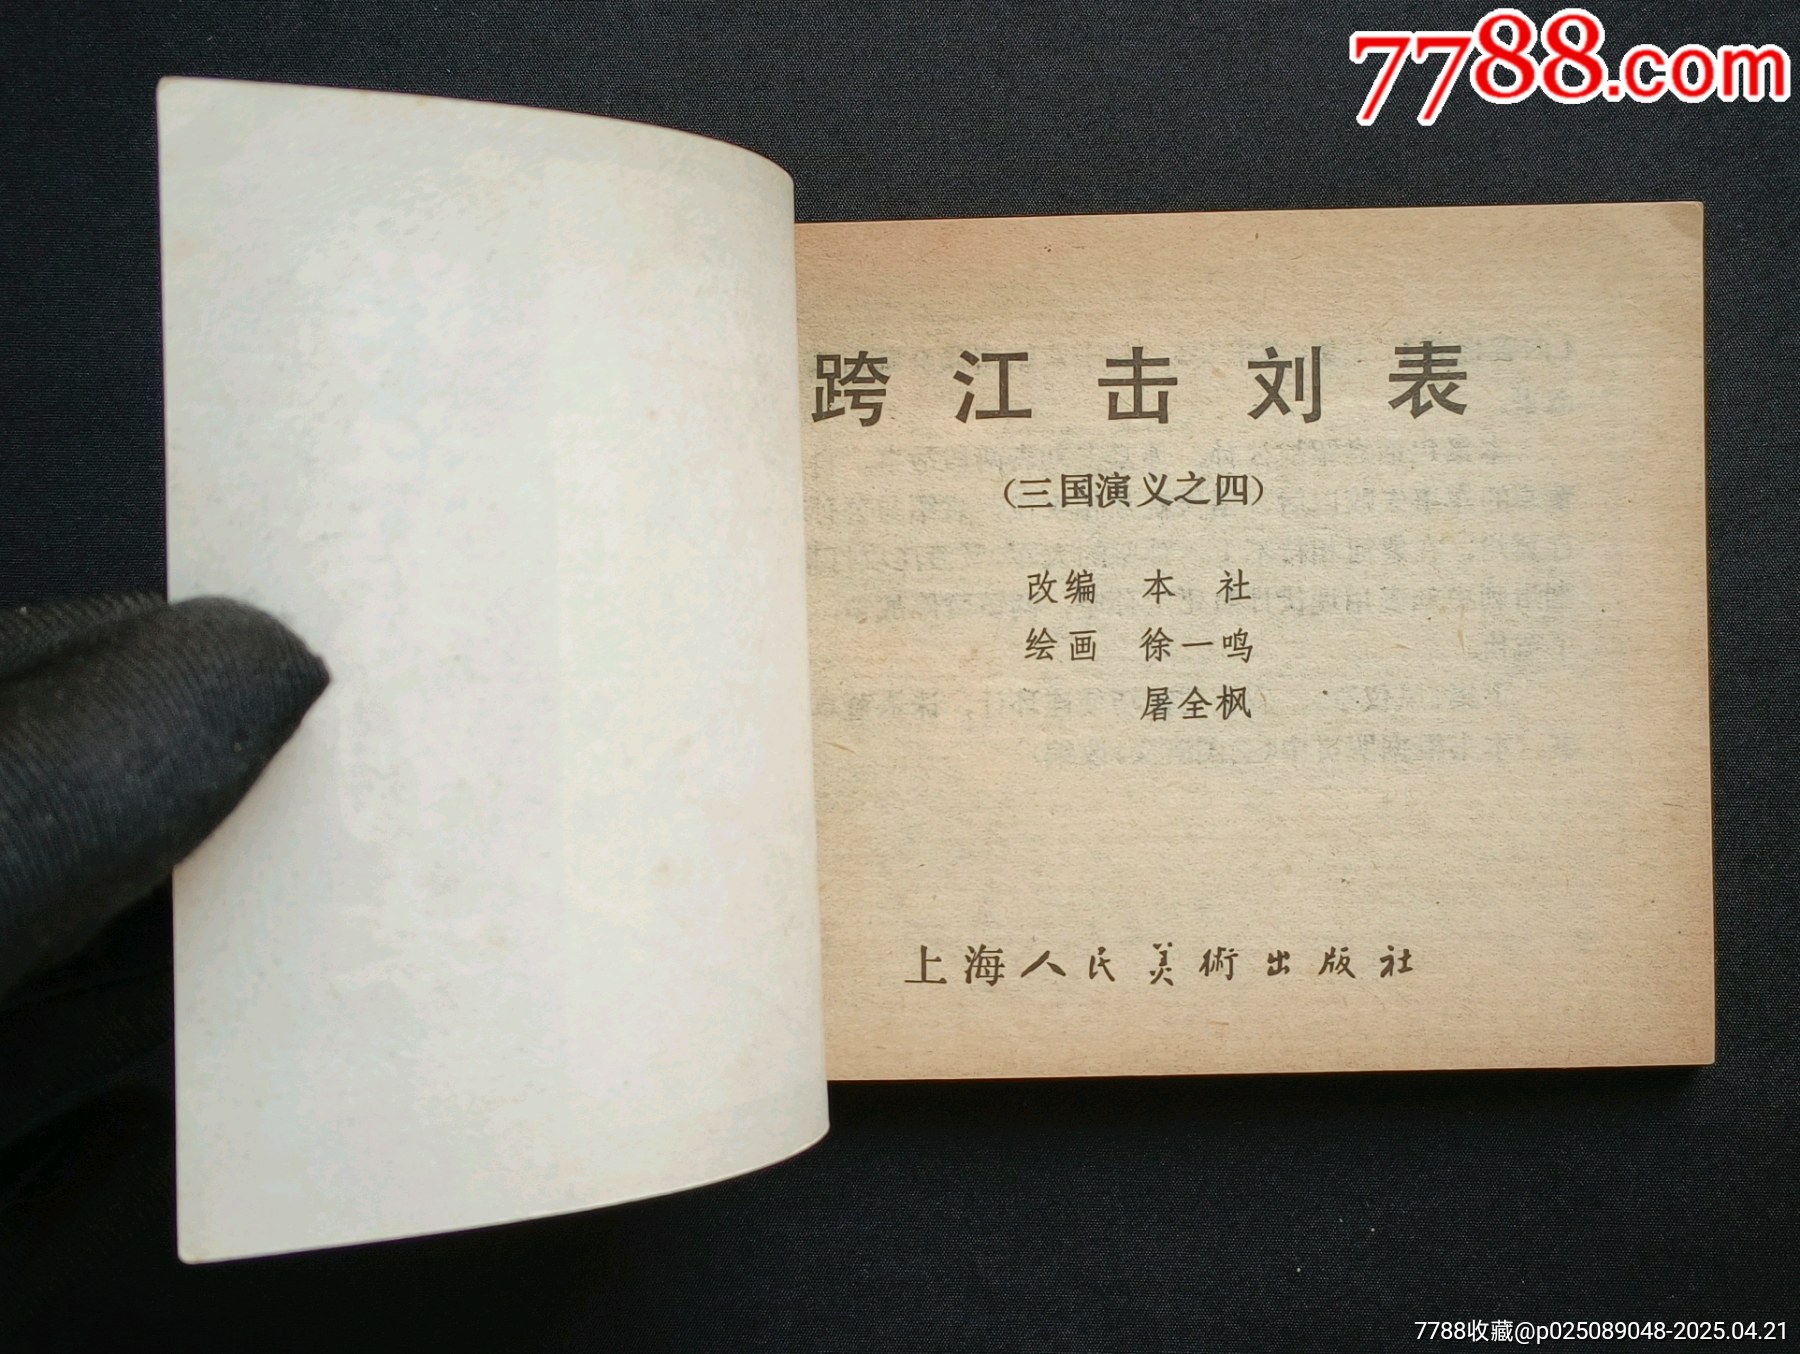 7788.com
跨江击刘表
（三国演义之四）
改编 本 社
绘画 徐一鸣
屠全枫
上海人民美術出版社
7788收藏@p025089048-2025.04.21